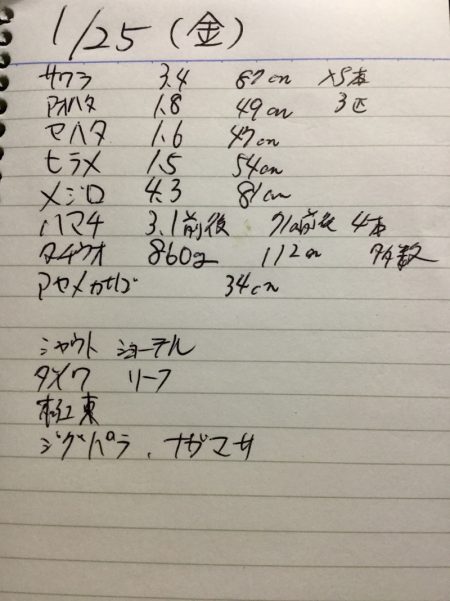 1/25 (金)
サワラ 3.4 87cm ×5本
アオハタ 1.8 49cm 3匹
セハタ 1.6 47cm
ヒラメ 1.5 54cm
メジロ 4.3 81cm
ハマチ 3.1前後 71cm前後 4本
タチウオ 860g 112cm 多数
アヤメカサゴ 34cm
シャウト ショーテル
タメワ リーフ
東
ジグパラ、ナガマサ